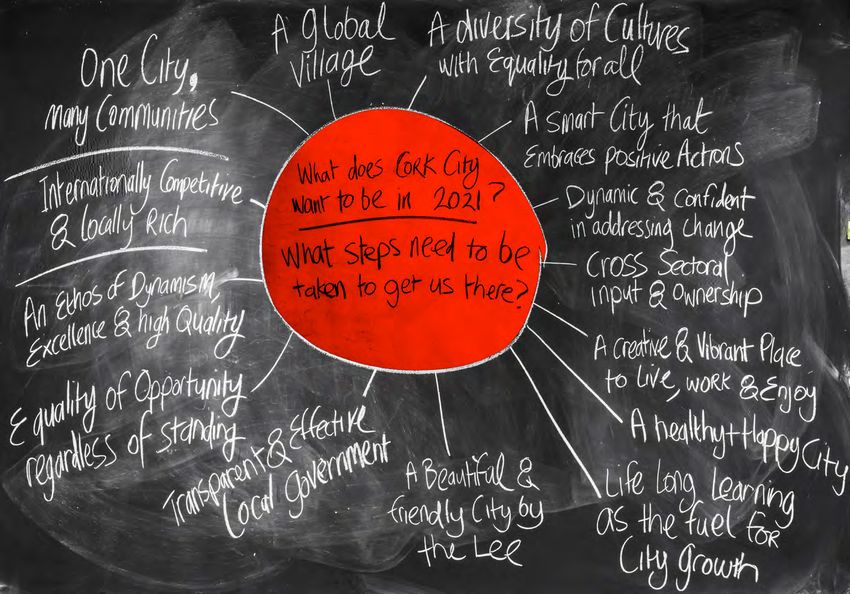 What does Cork City
want to be in 2021?
What steps need to be
taken to get us there?
A global
village
A diversity of Cultures
with Equality for all
A smart City that
Embraces positive Actions
Dynamic & confident
in addressing change
Cross Sectoral
input & ownership
A creative & Vibrant Place
to live, work & Enjoy
A healthy + Happy City
Life Long Learning
as the fuel for
City growth
A Beautiful &
friendly City by
the Lee
Transparent & Effective
Local Government
Equality of Opportunity
regardless of standing
An Ethos of Dynamism,
Excellence & high Quality
Internationally Competitive
& locally Rich
One City,
Many Communities